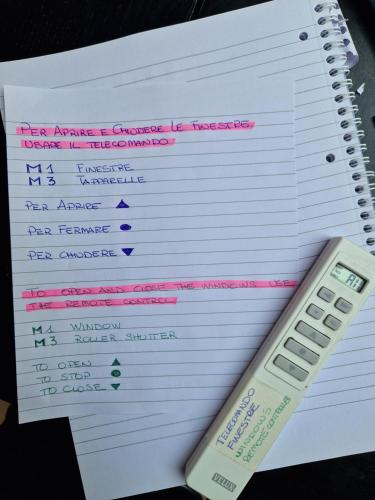 PER APRIRE E CHIUDERE LE FINESTRE
USARE IL TELECOMANDO
M1 FINESTRE
M3 TAPPARELLE
PER APRIRE ▲
PER FERMARE ●
PER CHIUDERE ▼
TO OPEN AND CLOSE THE WINDOWS USE
THE REMOTE CONTROL
M1 WINDOW
M3 ROLLER SHUTTER
TO OPEN ▲
TO STOP ●
TO CLOSE ▼
TELECOMANDO
FINESTRE
WINDOW'S
REMOTE CONTROLLER
VELUX